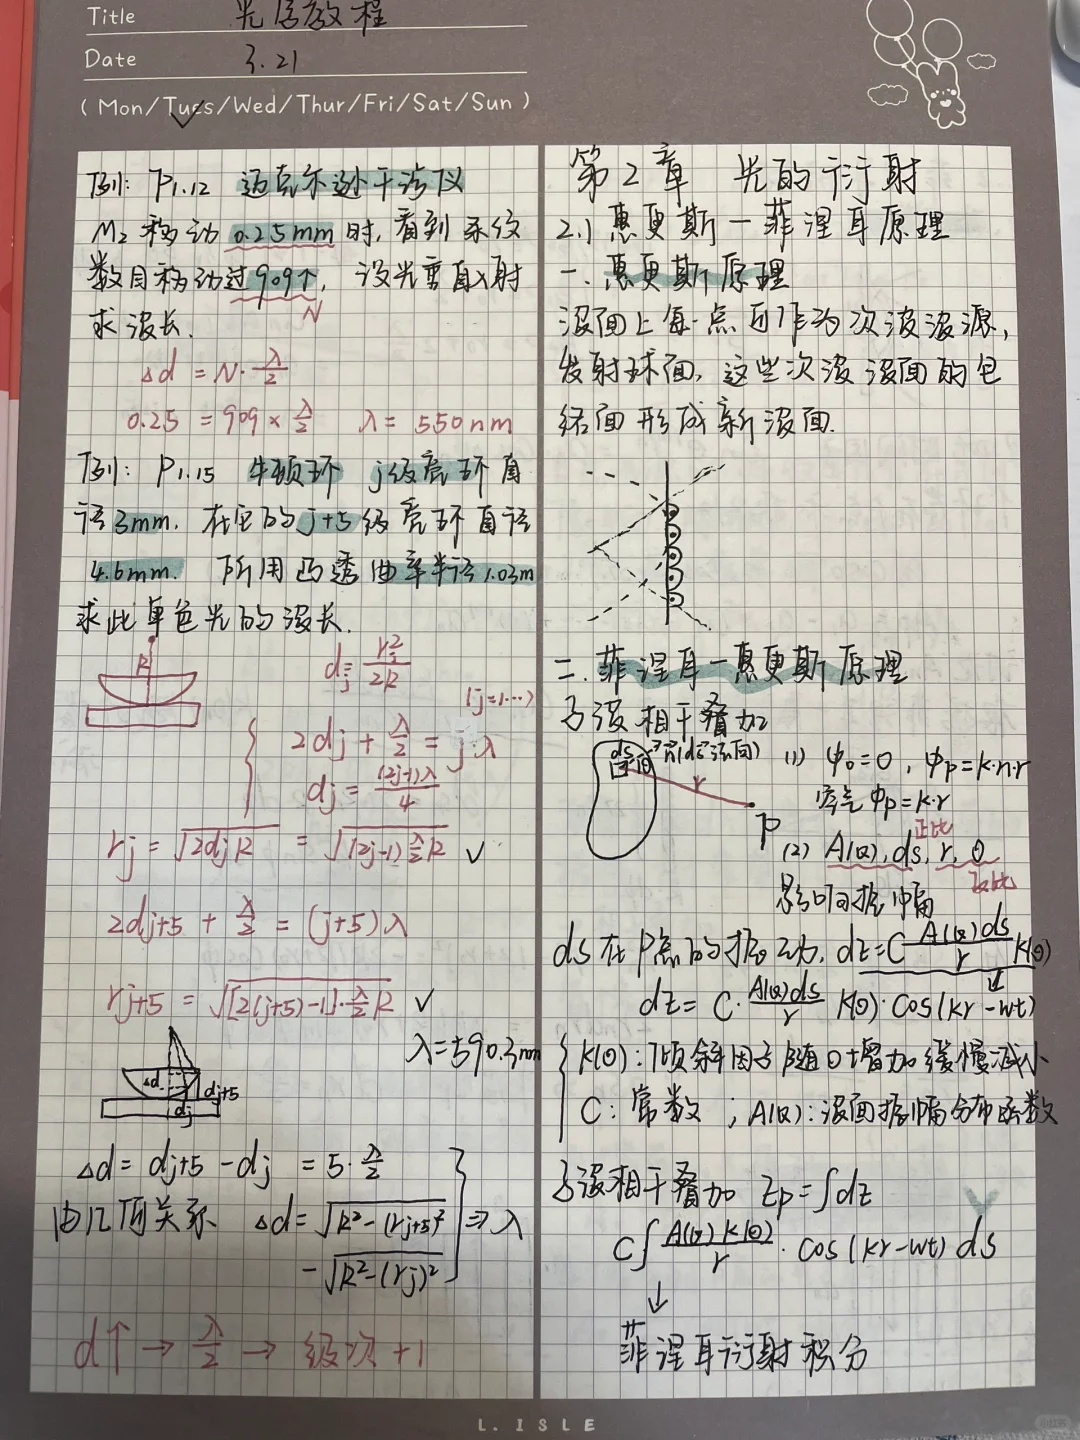 Title 光学教程
Date 3.21
(Mon/Tues/Wed/Thur/Fri/Sat/Sun)
例: P1.12 迈克尔逊干涉仪
M₂移动0.25mm时,看到条纹
数目移动过909个,设光垂直入射
N
求波长.
Δd = N·λ/2
0.25 = 909×λ/2 λ=550nm
例: P1.15 牛顿环 j级亮环直
径3mm. 在它的j+5级亮环直径
4.6mm. 所用凸透曲率半径1.03m
求此单色光的波长.
R
dj = rj²/2R
(j=1…)
2dj + λ/2 = j·λ
dj = (2j-1)λ/4
rj = √(2djR) = √((2j-1)λ/2 R) ✓
2dj+5 + λ/2 = (j+5)λ
rj+5 = √([2(j+5)-1]·λ/2 R) ✓
λ=590.3nm
Δd dj dj+5
Δd = dj+5 - dj = 5·λ/2
由几何关系 Δd = √(R²-(rj+5)²)
-√(R²-(rj)²) ⇒ λ
d↑ → λ/2 → 级次+1
第2章 光的衍射
2.1 惠更斯-菲涅耳原理
一.惠更斯原理
波面上每一点可作为次波波源,
发射球面,这些次波波面的包
络面形成新波面.
二.菲涅耳-惠更斯原理
子波相干叠加
ds
r
P
(1) φ₀=0, φp=k·n·r
空气φp=k·r
正比
(2) A(Q),ds,r,θ
反比
影响振幅
ds在P点的振动, dz=C A(Q)ds/r K(θ)
↓
dz = C·A(Q)ds/r K(θ)·cos(kr-wt)
K(θ):倾斜因子随θ增加缓慢减小
C:常数;A(Q):波面振幅分布函数
子波相干叠加 Zp=∫dz
C∫A(Q)K(θ)/r·cos(kr-wt)ds
↓
菲涅耳衍射积分
L. ISLE
小红书